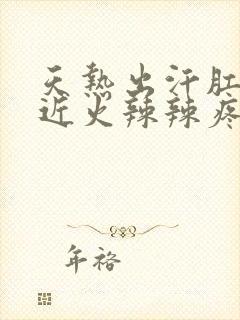 天热出汗肛
近火辣辣疼
年裕